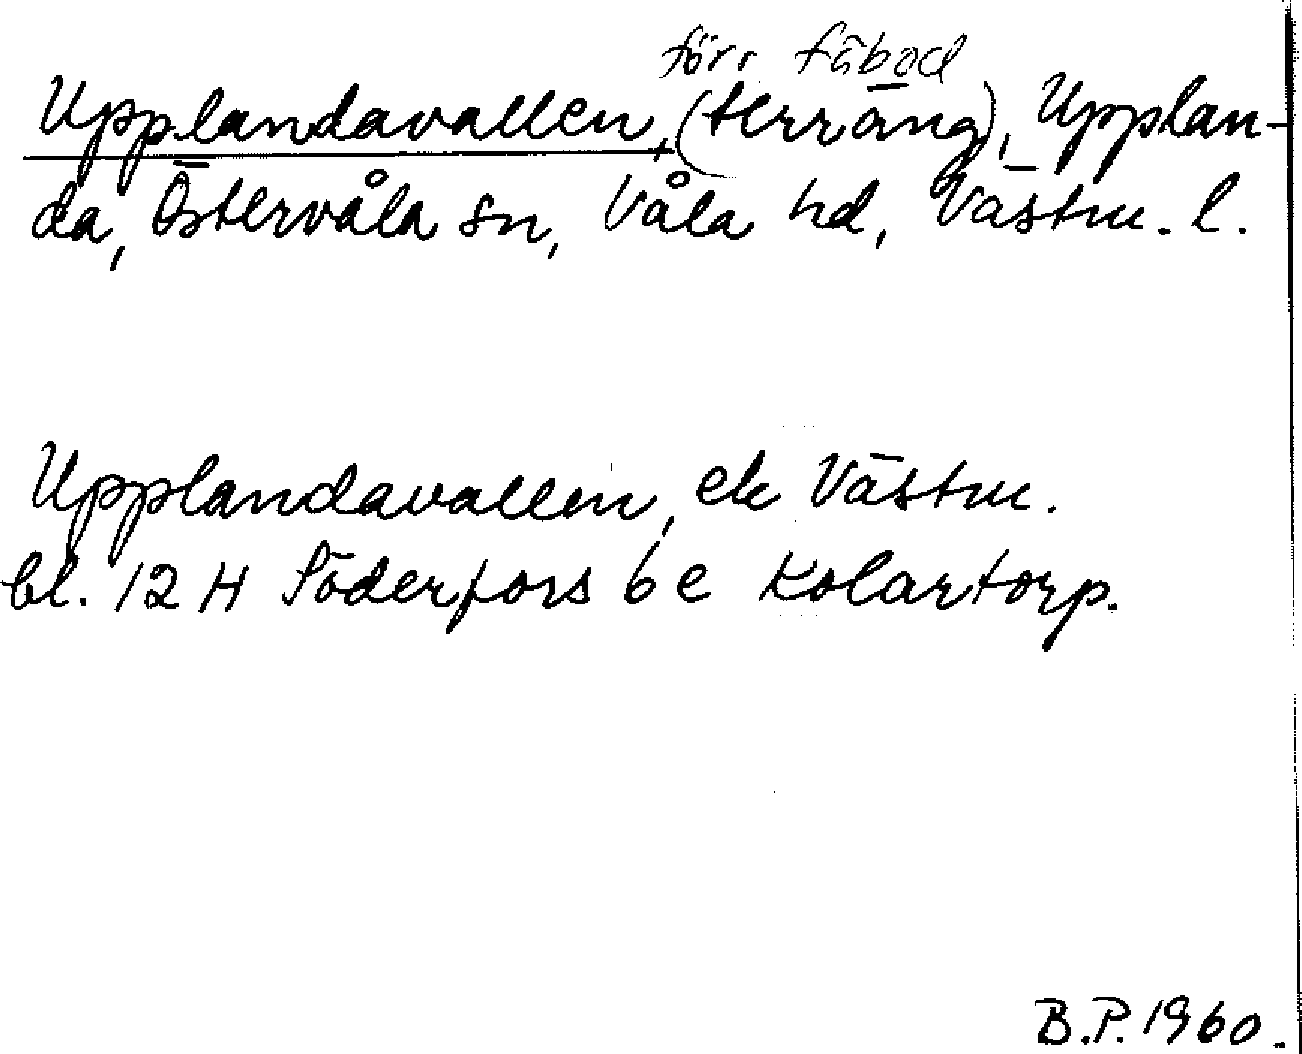 förr fäbod
Upplandavallen, (terräng), Upplan-
da, Östervåla sn, Våla hd, Västm. l.
Upplandavallen, ek Västm.
bl. 12 H Söderfors 6 e Kolartorp.
B.P. 1960.